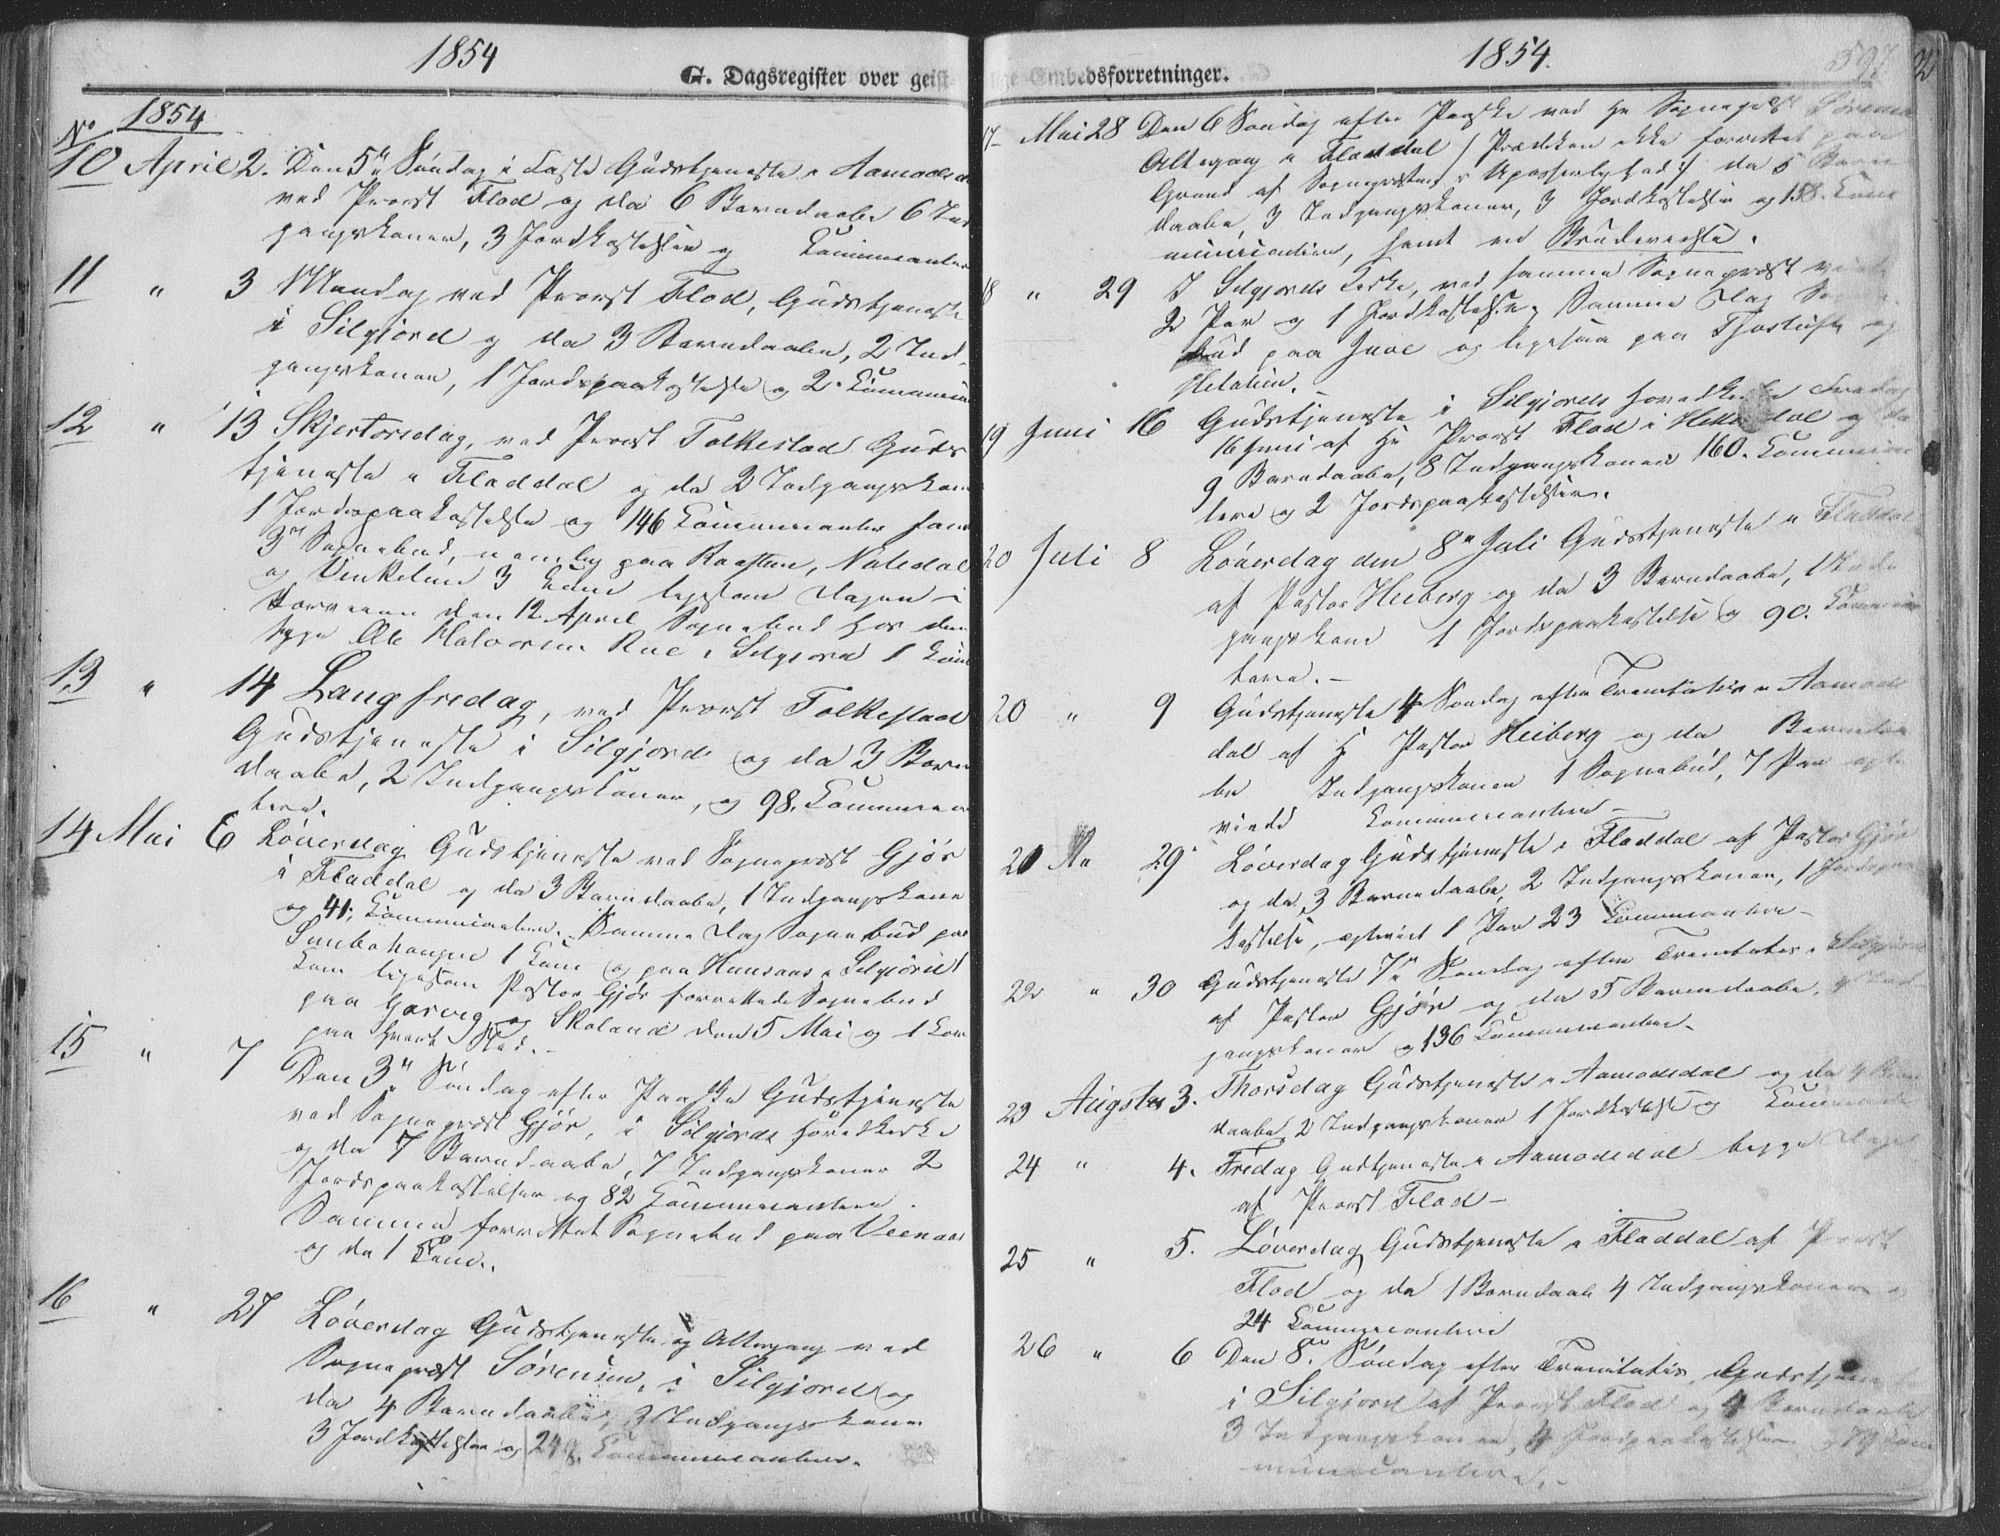 1854
G. Dagsregister over geist-
1854
No
10 April 2. Den 5te Søndag i Faste Gudstjeneste i Aamodsd
ved Provst Flod og da 6 Barnedaabe 6 Ind
gangskoner, 3 Jordkastelser og Communicanter
11 " 3 Mandag ved Provst Flod, Gudstjeneste
i Silgjord og da 3 Barnedaabe, 2 Ind-
gangskoner, 1 Jordspaakastelse og 2. Communi
12 " 13 Skjertorsdag, ved Provst Folkestad Guds
tjeneste i Fladdal og da 2 Indgangskon
1 Jordspaakastelse og 146 Communicanter samt
3de Sognebud, nemlig paa Raasten, Natedal
og Vinkelim 3 ligesom Dagen i
Forveien den 12 April Sognebud hos den
syge Ole Halvorsen Rue i Silgjord 1 Com
13 " 14 Langfredag, ved Provst Folkestad
Gudstjeneste i Silgjord og da 3 Barne
daabe, 2 Indgangskoner, og 98. Communican
tere.
14 Mai 6 Løverdag Gudstjeneste ved Sognepræst Gjør
i Fladdal og da 3 Barnedaabe, 1 Indgangskone
og 41. Communicanter. Samme Dag Sognebud paa
1 Com og paa i Silgjord 1
Com ligesom Pastor Gjør forrettede Sognebud
paa Garvig og Skoland den 5 Mai og 1 Com
paa hvert Sted.
15 " 7 Den 3die Søndag efter Paaske Gudstjeneste
ved Sognepræst Gjør, i Silgjords Hovedkirke
og da 7 Barnedaabe, 7 Indgangskoner 2
Jordspaakastelser og 82 Communicantere.
Samme forrettet Sognebud paa
og da 1 Com.
16 " 27 Løverdag Gudstjeneste og Altergang ved
Sognepræst Sørensen, i Silgjord og
da 4 Barnedaabe, 3 Indgangskoner
3 Jordkastelser og Communicanter.
lige Embedsforretninger.
1854.
597
17 Mai 28 Den 6 Søndag efter Paaske ved Hr Sognepræst Sørensen
Altergang i Fladdal (Prædiken ikke forrettet paa
Grund af Sognepræstens Upasselighed) da 5 Barne
daabe, 3 Indgangskoner, 3 Jordkastelse og 158. Com
municantere, samt en Brudevielse.
18 " 29 I Silgjords Kirke, ved samme Sognepræst viet
2 Par og 1 Jordkastelse. Samme Dag Sogne
bud paa Juve og ligesaa paa og
19 Juni 16 Gudstjeneste i Silgjords Hovedkirke Fredag
16 Juni af Hr Provst Flod i og da
9 Barnedaabe, 8 Indgangskoner 160. Communican
tere og 2 Jordspaakastelser.
20 Juli 8 Løverdag den 8de Juli Gudstjeneste i Fladdal
af Pastor Heiberg og da 3 Barnedaabe, 1 Ind
gangskone 1 Jordspaakastelse og 90. Communican
tere.-
20 " 9 Gudstjeneste 4 Søndag efter Trinitatis i Aamods
dal af Hr Pastor Heiberg og da Barnedaa
be Indgangskoner 1 Sognebud, 7 Par ægte
viede Communicantere-
21 29 Løverdag Gudstjeneste i Fladdal af Pastor Gjør
og da 3 Barnedaabe, 2 Indgangskoner, 1 Jordspaa
kastelse, ægteviet 1 Par 23 Communicantere-
22 " 30 Gudstjeneste 7de Søndag efter Trinitatis i Silgjord
af Pastor Gjør og da 5 Barnedaabe, 4 Ind
gangskoner og 136 Communicantere-
23 Augst 3. Thorsdag Gudstjeneste i Aamodsdal og da 4 Barne
daabe, 2 Indgangskoner 1 Jordkastelse og Communicanter
24 " 4. Fredag Gudtjeneste i Aamodsdal begge Dage
af Provst Flod-
25 " 5. Løverdag Gudstjeneste i Fladdal af Provst
Flod og da 1 Barnedaab 4 Indgangskoner og
24 Communicantere
26 " 6 Den 8de Søndag efter Trinitatis Gudstjeneste
i Silgjord af Provst Flod og 4 Barnedaabe
3 Indgangskoner, 4 Jordspaakastelser og 79 Com
municantere.-